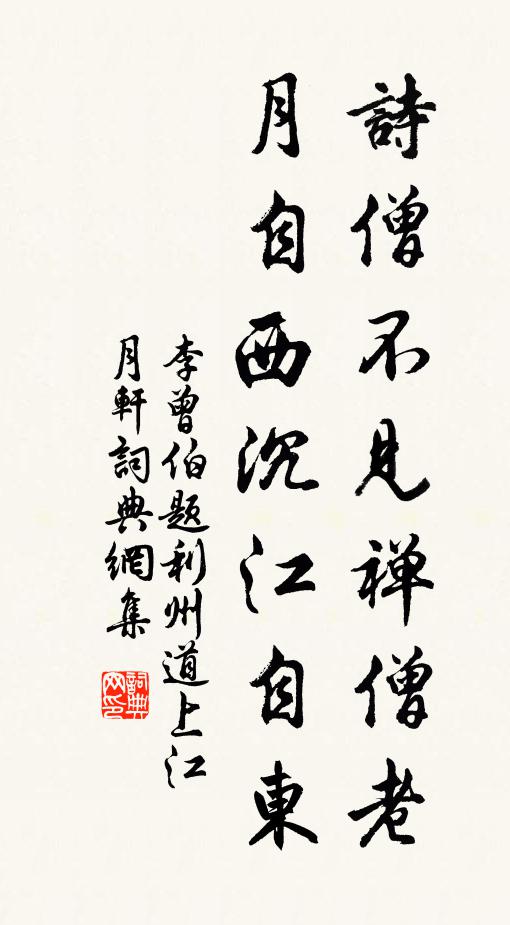 詩僧不見禅僧老
月自西沉江自東
李曾伯题利州道上江
月軒詞典網集
詞典
网印